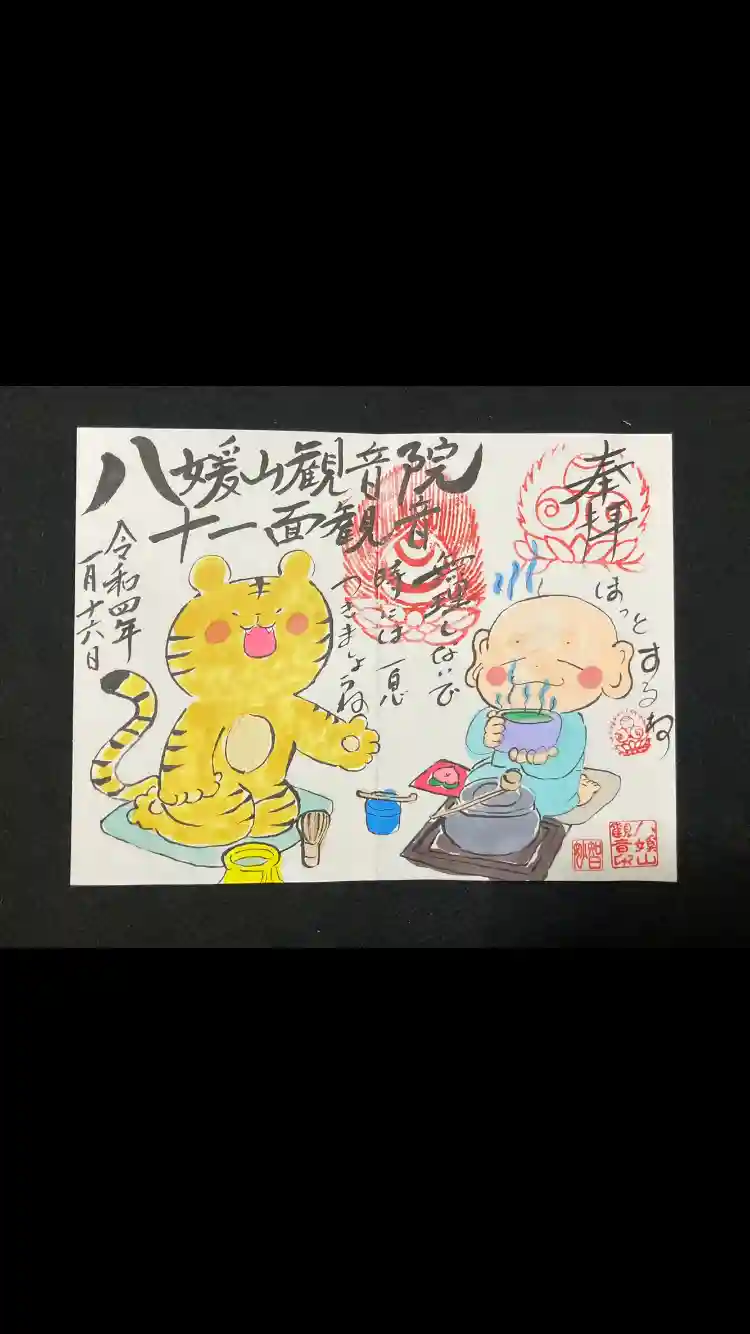 奉拝
ほっとするね
八媛山観音院
十一面観音
無理しないで
時には一息
つきましょうね
令和四年
一月十六日